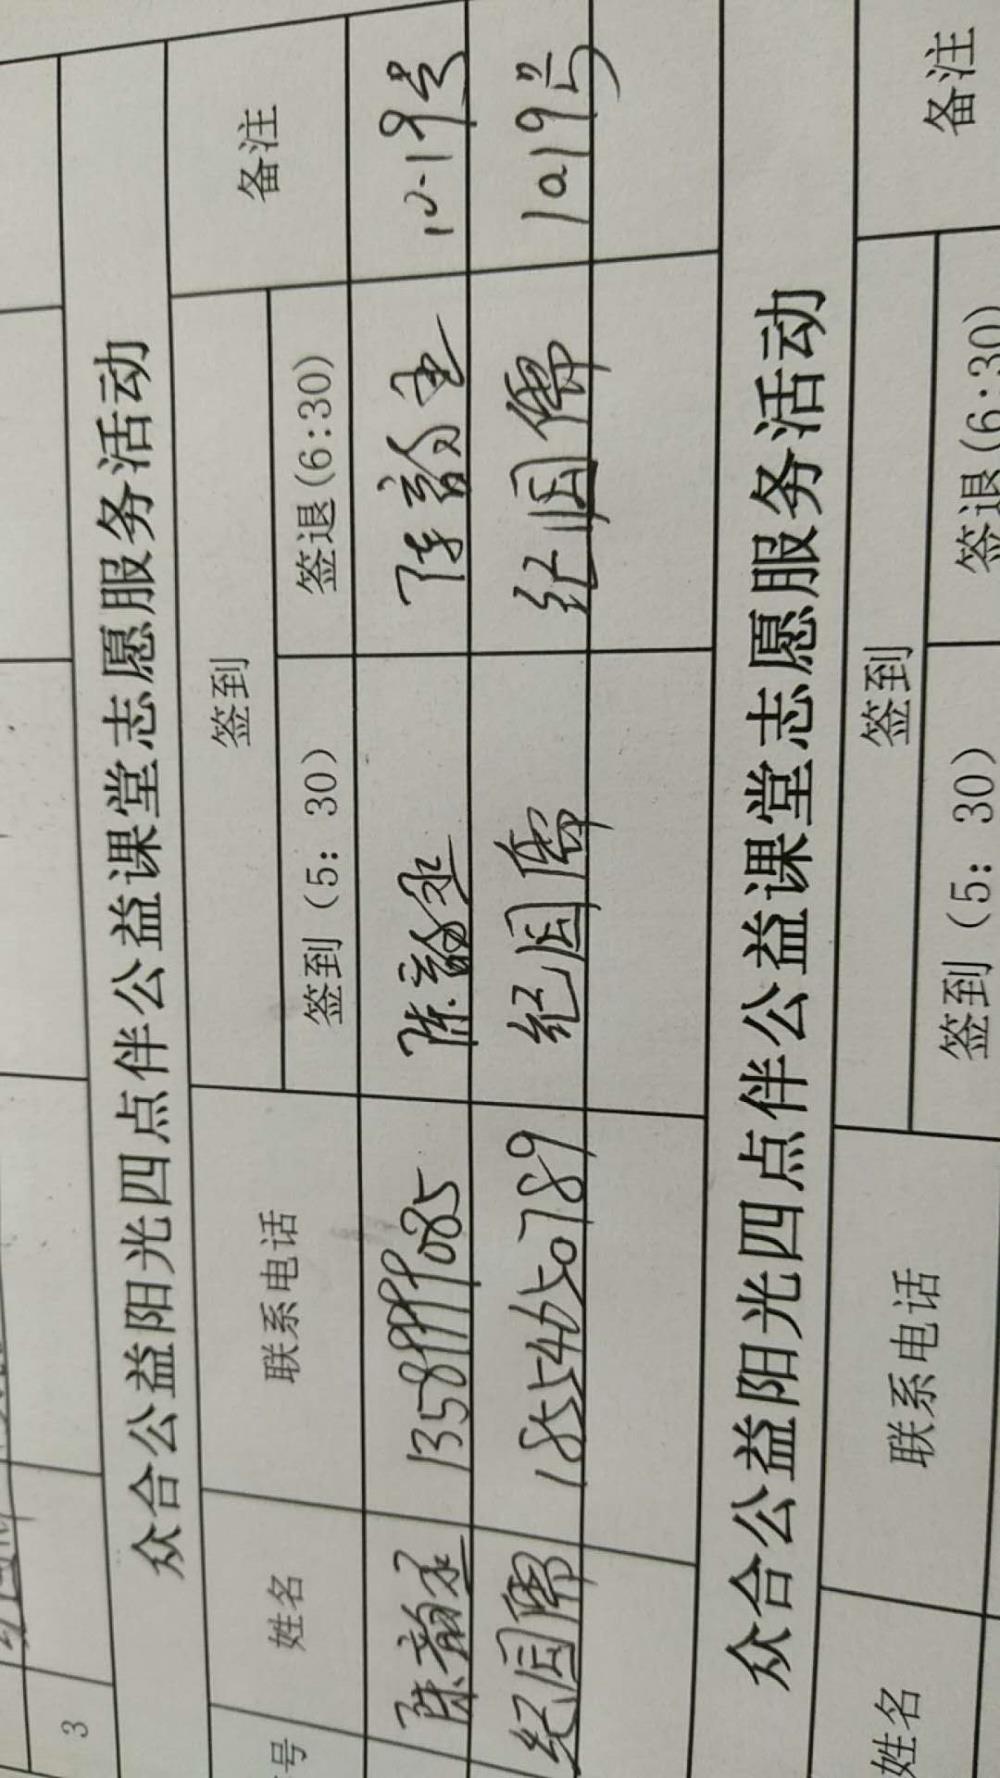 3
众合公益阳光四点伴公益课堂志愿服务活动
号 姓名 联系电话 签到 备注
签到（5：30） 签退(6:30)
陈韵丞 陈韵丞 陈韵丞 10.19号
纪国儒 18554650789 纪国儒 纪国儒 10.19号
众合公益阳光四点伴公益课堂志愿服务活动
姓名 联系电话 签到 备注
签到（5：30） 签退(6:30)